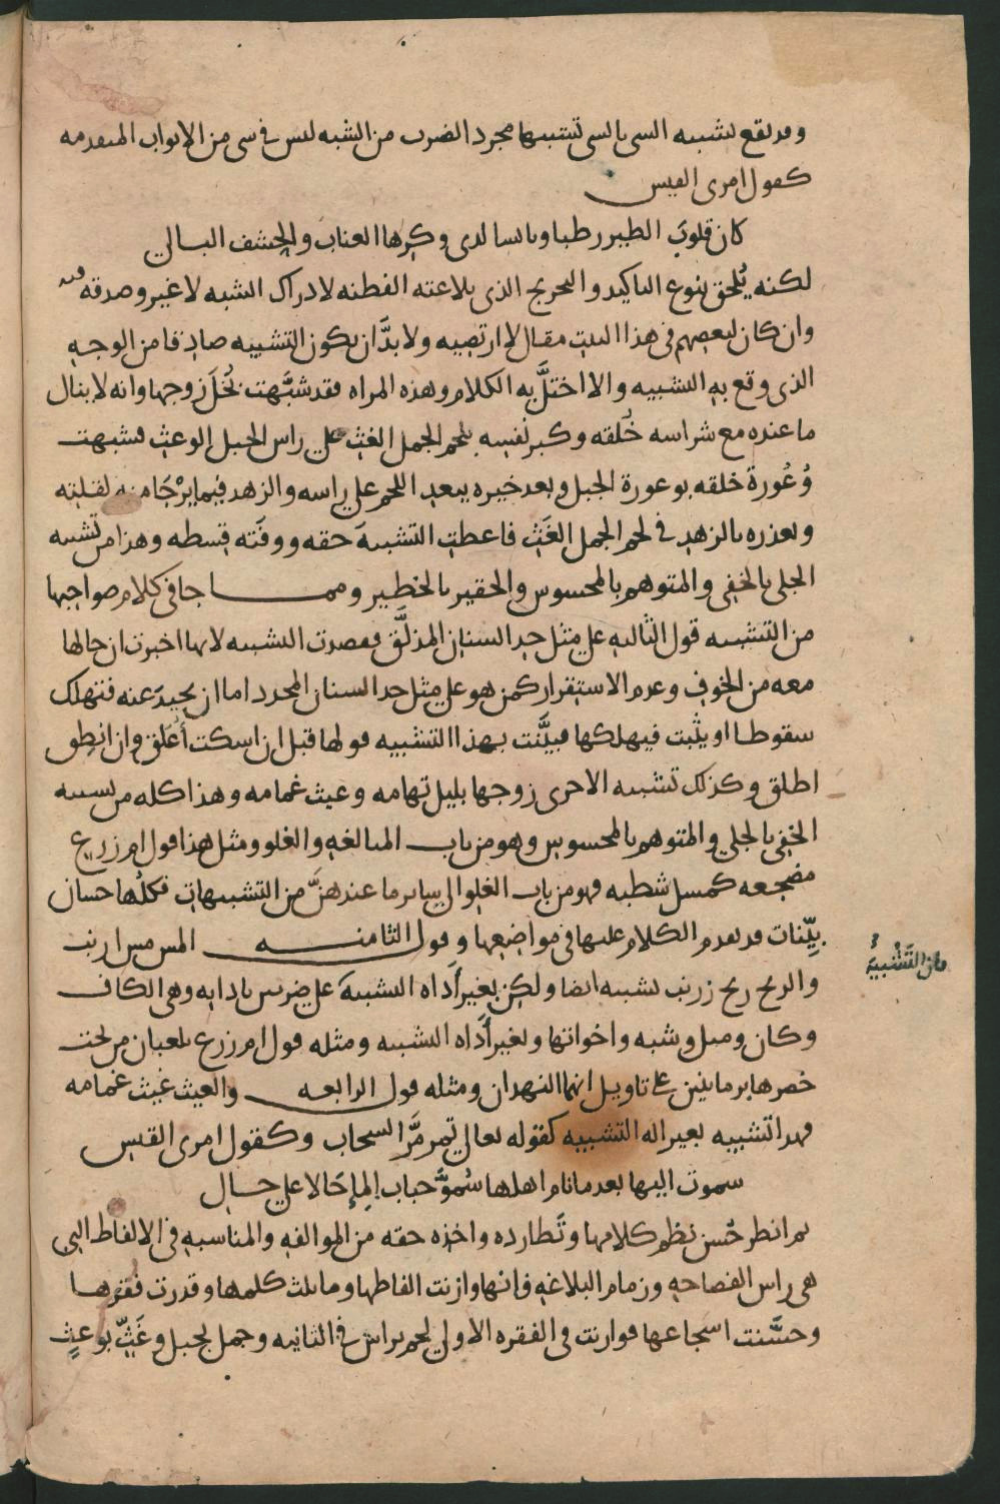 وقد يقع تشبيه الشي بالشي تشبيها مجرد الضرب من الشبه ليس في شي من الابواب المتقدمه
كقول امرى القيس
كان قلوب الطير رطبا ويابسا لدى وكرها العناب والحشف البالي
لكنه يُلحق بنوع التاكيد والتحريج الذي بلاغته الفطنه لادراك الشبه لا غير وصدقه فيه
وان كان لبعضهم في هذا البيت مقال لا ارتضيه ولا بدَّ ان يكون التشبيه صادقا من الوجه
الذي وقع به التشبيه والا اختلَّ به الكلام وهذه المراه فقد شبَّهت بُخلَ زوجها وانه لا ينال
ما عنده مع شراسه خُلقه وكبر نفسه بلحم الجمل الغث على راس الجبل الوعث فشبهت
وُعُورةَ خلقه بوعورة الجبل وبعد خيره ببعد اللحم على راسه والزهد فيما يرْجَا منه لقلته
وتعذره بالزهد في لحم الجمل الغَثِ فاعطت التشبيهَ حقه ووفَته قسطه وهذا من تشبيه
الجلي بالخفي والمتوهم بالمحسوس والحقير بالخطير ومما جا في كلام صواحبها
من التشبيه قول الثالثه على مثل حد السنان المذلَّق فقصدت التشبيه لانها اخبرت ان حالها
معه من الخوف وعدم الاستقرار كمن هو على مثل حد السنان المحدد اما ان يحيدَ عنه فتهلك
سقوطا او يثبت فيهلكها فبيَّنت بهذا التشبيه قولها قبل ان اسكت أُعَلق وان انطق
اطلق وكذلك تشبيه الاخرى زوجها بليل تهامه وغيث غمامه وهذا كله من تشبيه
الخفي بالجلي والمتوهم بالمحسوس وهو من باب المبالغه والغلو ومثل هذا قول ام زرع
مضجعه كمسل شطبه فهو من باب الغلو الى ساير ما عندهنَّ من التشبيهات فكلُها حسان
بيِّنات وقد تقدم الكلام عليها في مواضعها وقول الثامنه المس مس ارنب
والريح ريح زرنب تشبيه ايضا ولكن بغير أَداه التشبيهَ على ضربين باداته وهي الكاف
وكان ومثل وشبه واخواتها وبغير أَداه التشبيه ومثله قول ام زرع يلعبان من تحت
خصرها برمانتين على تاويل انهما النهدان ومثله قول الرابعه والغيث غيث غمامه
فهذا تشبيه بغير اله التشبيه كقوله تعالى تمر مَرَّ السحاب وكقول امرى القيس
سموت اليها بعد ما نام اهلها سُموَّ حباب الماِ حَالا على حال
ثم انظر حُسن نظم كلامها وتَطارده واخذه حقه من الموالفه والمناسبه في الالفاظ التي
هي راس الفصاحه وزمام البلاغه فانها وازنت الفاظها وماثلت كلمها وقدرت فقرها
وحسَّنت اسجاعها فوازنت في الفقره الاولى لحم براس في الثانيه وجمل بجبل وغَثٌ بوعثٍ
فان التَشْبِيهُ